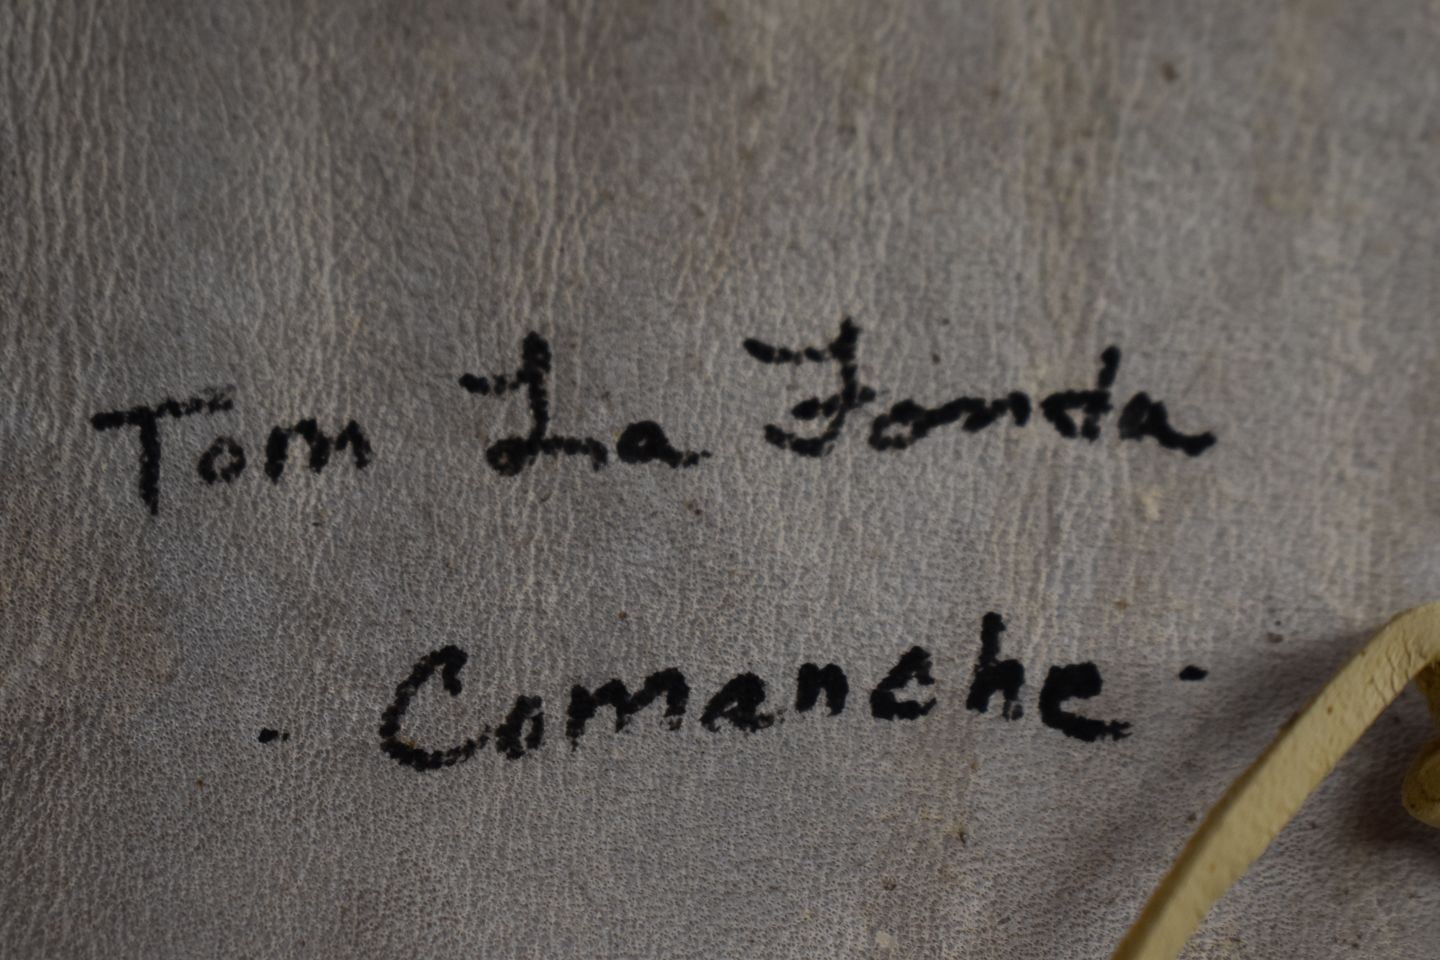 Tom La Fonda
- Comanche -